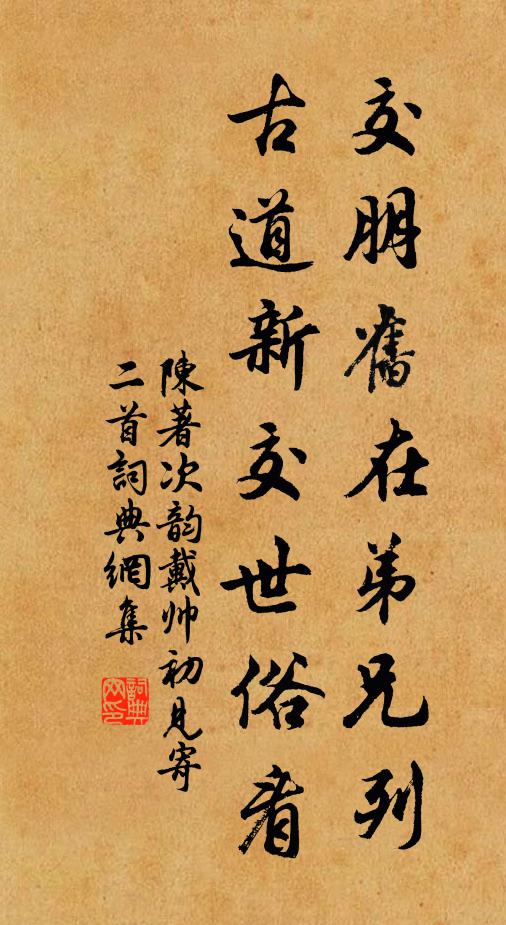 交朋舊在弟兄列
古道新交世俗看
陳著次韵戴帅初見寄
二首詞典網集
詞典網印